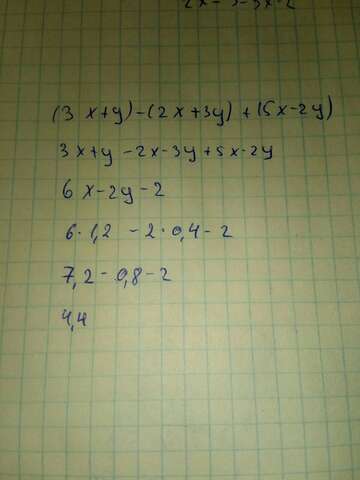 2x-3-3x-2
(3x+y)-(2x+3y)+(5x-2y)
3x+y-2x-3y+5x-2y
6x-2y-2
6·1,2-2·0,4-2
7,2-0,8-2
4,4